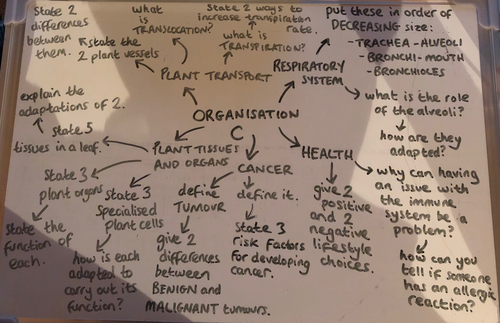 State 2
differences
between
them.
state the
2 plant vessels
what
is
TRANSLOCATION?
State 2 ways to
increase transpiration
rate.
what is
TRANSPIRATION?
PLANT TRANSPORT
put these in order of
DECREASING size:
- TRACHEA - ALVEOLI
- BRONCHI - MOUTH
- BRONCHIOLES
RESPIRATORY
SYSTEM
what is the role
of the alveoli?
how are they
adapted?
ORGANISATION
C
explain the
adaptations of 2.
state 5
tissues in a leaf.
PLANT TISSUES
AND ORGANS
State 3
plant organs
State the
function of
each.
State 3
Specialised
plant cells
how is each
adapted to
carry out its
function?
CANCER
define
TUMOUR
give 2
differences
between
BENIGN and
MALIGNANT tumours.
define it.
State 3
risk factors
for developing
cancer.
HEALTH
give 2
positive
and 2
negative
lifestyle
choices.
why can having
an issue with
the immune
system be a
problem?
how can you
tell if someone
has an allergic
reaction?